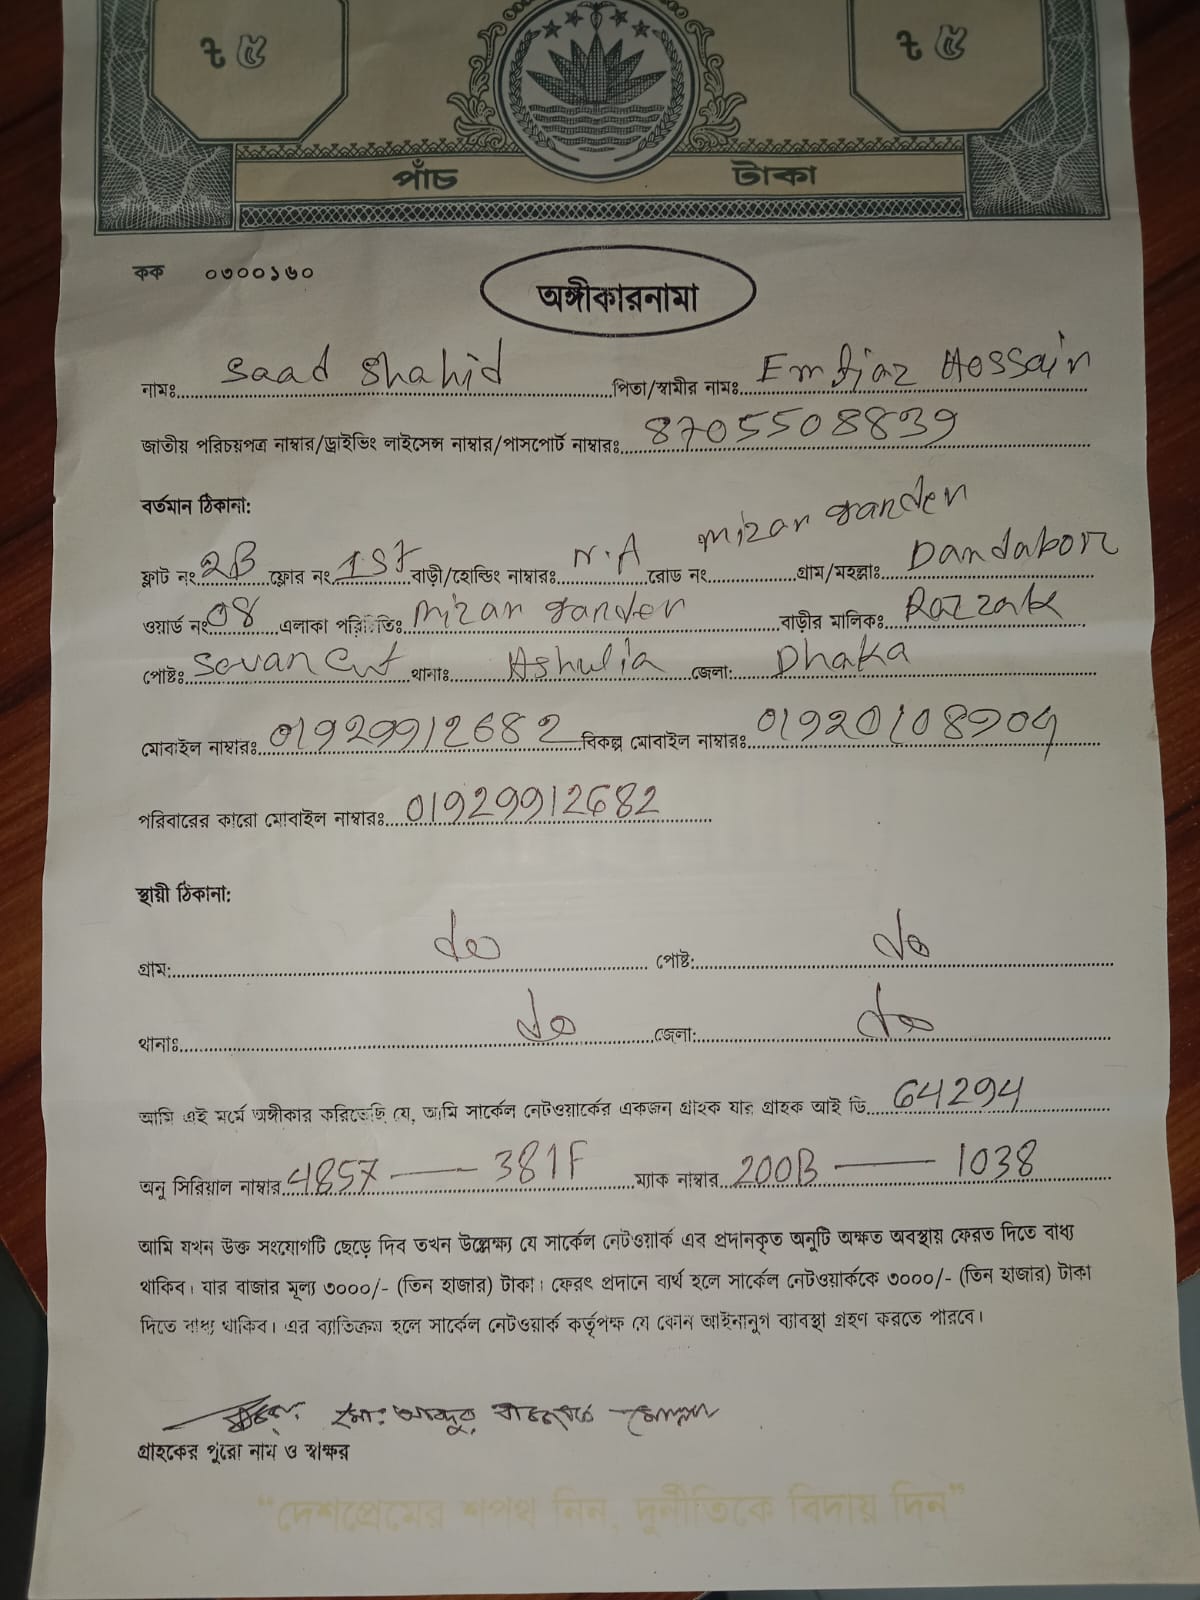 ৳ ৫ ৳ ৫
পাঁচ টাকা
কক ০৩০০১৬০
অঙ্গীকারনামা
নামঃ Saad Shahid পিতা/স্বামীর নামঃ Emtiaz Hossain
জাতীয় পরিচয়পত্র নাম্বার/ড্রাইভিং লাইসেন্স নাম্বার/পাসপোর্ট নাম্বারঃ 8705508839
বর্তমান ঠিকানা:
ফ্লাট নং 2B ফ্লোর নং 1st বাড়ী/হোল্ডিং নাম্বারঃ N.A রোড নং mizan garden গ্রাম/মহল্লাঃ Dandabor
ওয়ার্ড নং 08 এলাকা পরিচিতিঃ mizan garden বাড়ীর মালিকঃ Razzak
পোষ্টঃ Savar Cnt থানাঃ Ashulia জেলা: Dhaka
মোবাইল নাম্বারঃ 01929912682 বিকল্প মোবাইল নাম্বারঃ
পরিবারের কারো মোবাইল নাম্বারঃ 01929912682
স্থায়ী ঠিকানা:
গ্রাম: do পোষ্ট: do
থানাঃ do জেলা: do
আমি এই মর্মে অঙ্গীকার করিতেছি যে, আমি সার্কেল নেটওয়ার্কের একজন গ্রাহক যার গ্রাহক আই ডি 64294
অনু সিরিয়াল নাম্বার 4857 — 381F ম্যাক নাম্বার 200B — 1038
আমি যখন উক্ত সংযোগটি ছেড়ে দিব তখন উল্লেক্ষ্য যে সার্কেল নেটওয়ার্ক এর প্রদানকৃত অনুটি অক্ষত অবস্থায় ফেরত দিতে বাধ্য
থাকিব। যার বাজার মূল্য ৩০০০/- (তিন হাজার) টাকা। ফেরৎ প্রদানে ব্যর্থ হলে সার্কেল নেটওয়ার্ককে ৩০০০/- (তিন হাজার) টাকা
দিতে বাধ্য থাকিব। এর ব্যতিক্রম হলে সার্কেল নেটওয়ার্ক কর্তৃপক্ষ যে কোন আইনানুগ ব্যাবস্থা গ্রহণ করতে পারবে।
মো: আব্দুর
গ্রাহকের পুরো নাম ও স্বাক্ষর
“দেশপ্রেমের শপথ নিন, দুর্নীতিকে বিদায় দিন”